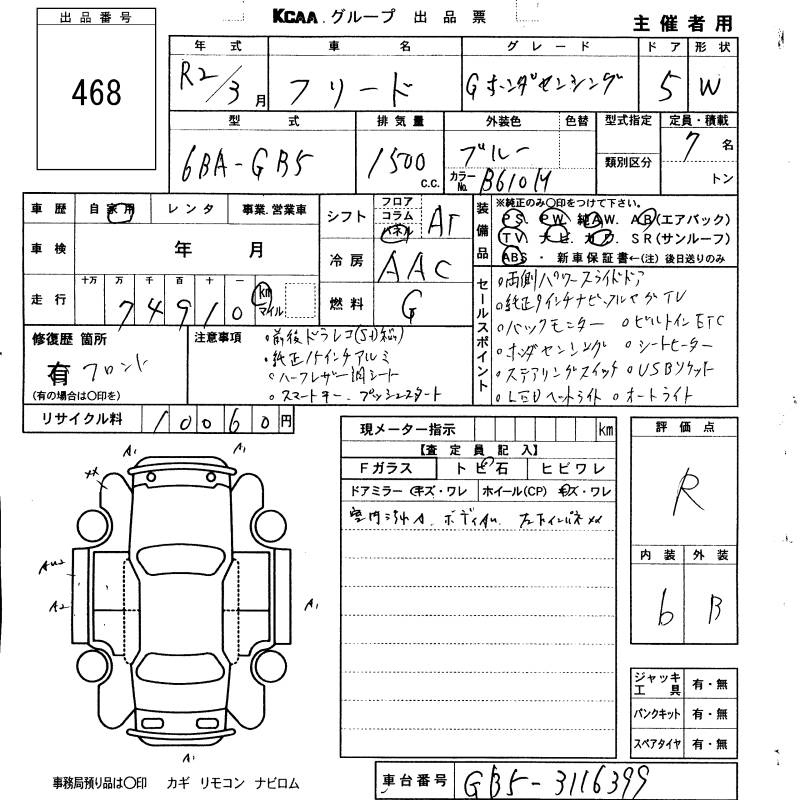 出品番号
KCAA.グループ 出品票
主催者用
468
年式 車名 グレード ドア 形状
R2/3月 フリード Gホンダセンシング 5 W
型式 排気量 外装色 色替 型式指定 定員・積載
6BA-GB5 1500 c.c. ブルー 7名
カラーNo. B610M 類別区分 トン
車歴 自家用 レンタ 事業.営業車
シフト フロア コラム パネル AT
装備品 ※純正のみ〇印をつけて下さい。
PS. PW. 純AW. AB(エアバック)
TV. ナビ. カワ. SR(サンルーフ)
ABS. 新車保証書←(注)後日送りのみ
車検 年 月
冷房 AAC
走行 十万 万 千 百 十 一
74910 km マイル
燃料 G
セールスポイント
○両側パワースライドドア
○純正9インチナビ.フルセグTV
○バックモニター ○ビルトインETC
○ホンダセンシング ○シートヒーター
○ステアリングスイッチ ○USBソケット
○LEDヘッドライト ○オートライト
修復歴 箇所
有 フロント
(有の場合は〇印を)
注意事項
○前後ドラレコ
○純正15インチアルミ
○ハーフレザー調シート
○スマートキー.プッシュスタート
リサイクル料 10060円
現メーター指示 km
【査定員記入】
Fガラス トビ石 ヒビワレ
ドアミラー キズ・ワレ ホイール(CP) キズ・ワレ
室内汚れ
評価点
R
内装 外装
6 B
A1 A1
XX
AU2
A2 A1
A1
ジャッキ工具 有・無
パンクキット 有・無
スペアタイヤ 有・無
事務局預り品は〇印 カギ リモコン ナビロム
車台番号 GB5-3116399